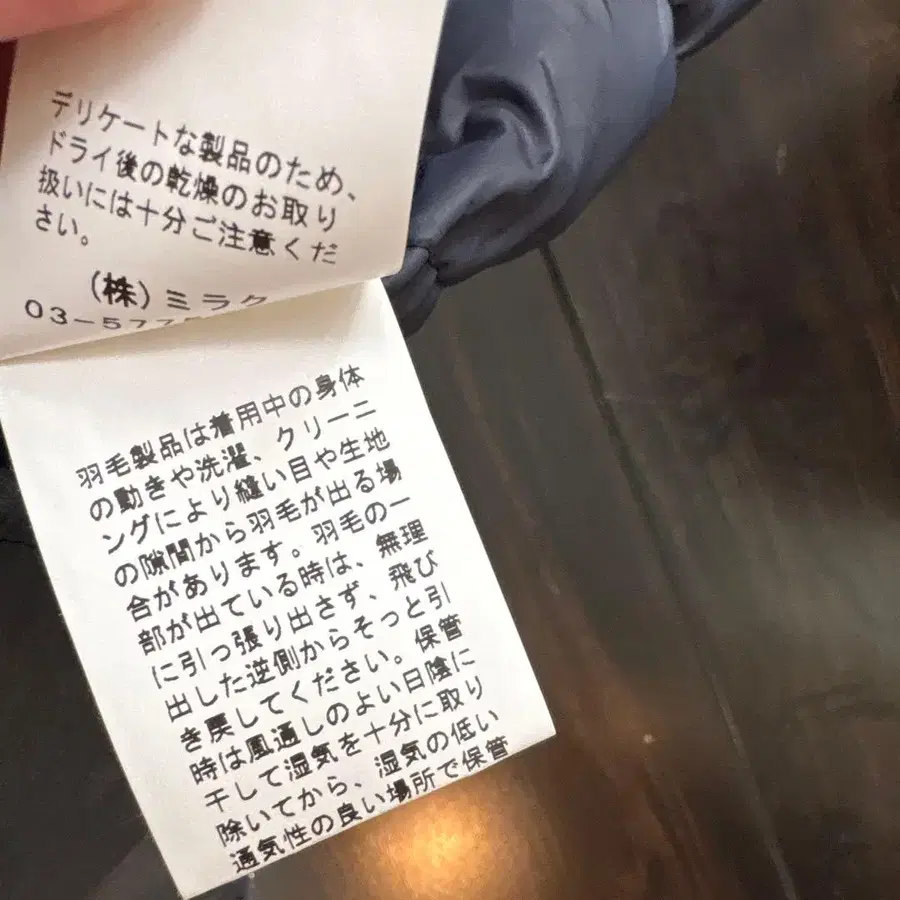 デリケートな製品のため、
ドライ後の乾燥のお取り
扱いには十分ご注意くだ
さい。
(株)ミラク
03-577
羽毛製品は着用中の身体
の動きや洗濯、クリーニ
ングにより縫い目や生地
の隙間から羽毛が出る場
合があります。羽毛の一
部が出ている時は、無理
に引っ張り出さず、飛び
出した逆側からそっと引
き戻してください。保管
時は風通しのよい日陰に
干して湿気を十分に取り
除いてから、湿気の低い
通気性の良い場所で保管